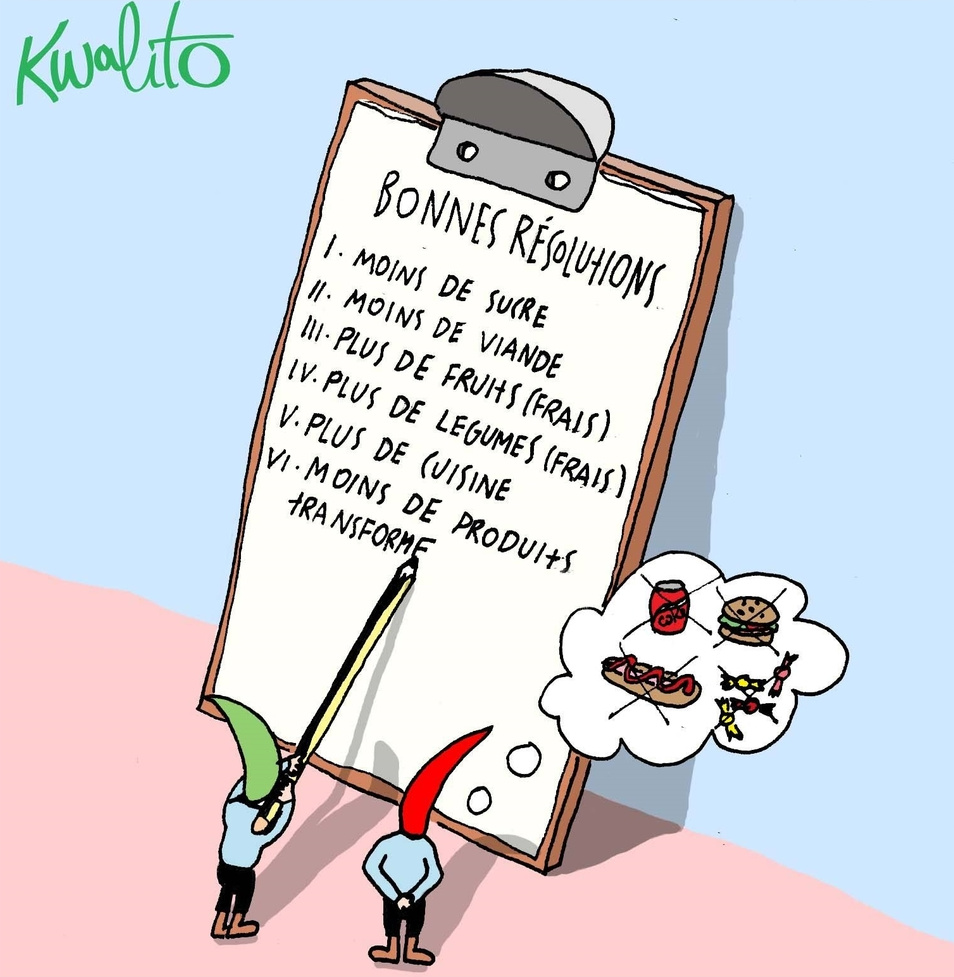 Kwalito
BONNES RÉSOLUTIONS
I. MOINS DE SUCRE
II. MOINS DE VIANDE
III. PLUS DE FRUITS (FRAIS)
IV. PLUS DE LEGUMES (FRAIS)
V. PLUS DE CUISINE
VI. MOINS DE PRODUITS
TRANSFORME
COKE